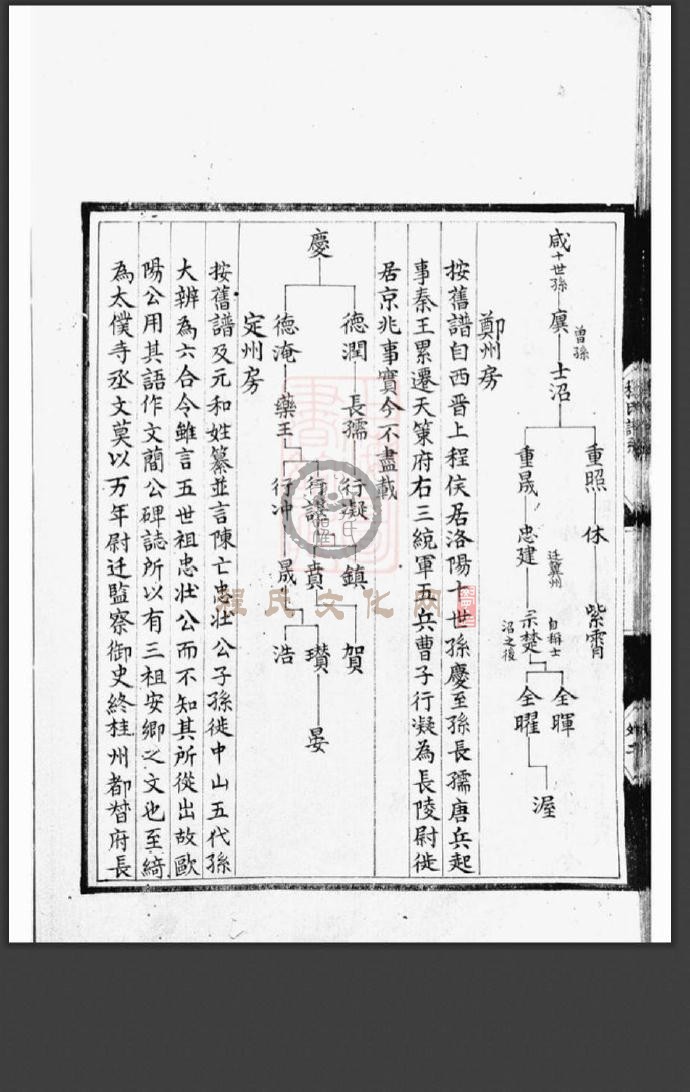 咸十世孫
廙
曾孫
士沼
重照
休
紫霄
重晟
忠建
迁冀州
示楚
自稱士
沼之後
全暉
全曜
渥
鄭州房
按舊譜自西晋上程侯居洛陽十世孫慶至孫長孺唐兵起
事秦王累遷天策府右三統軍五兵曹子行凝為長陵尉徙
居京兆事實今不盡載
慶
德潤
長孺
行凝
鎮
賀
德淹
藥王
行諶
賁
瓚
晏
行冲
晟
浩
定州房
按舊譜及元和姓纂並言陳亡忠壯公子孫徙中山五代孫
大辨為六合令雖言五世祖忠壯公而不知其所從出故歐
陽公用其語作文簡公碑誌所以有三祖安鄉之文也至綺
為太僕寺丞文莫以万年尉迁監察御史終桂州都督府長
程氏文化网